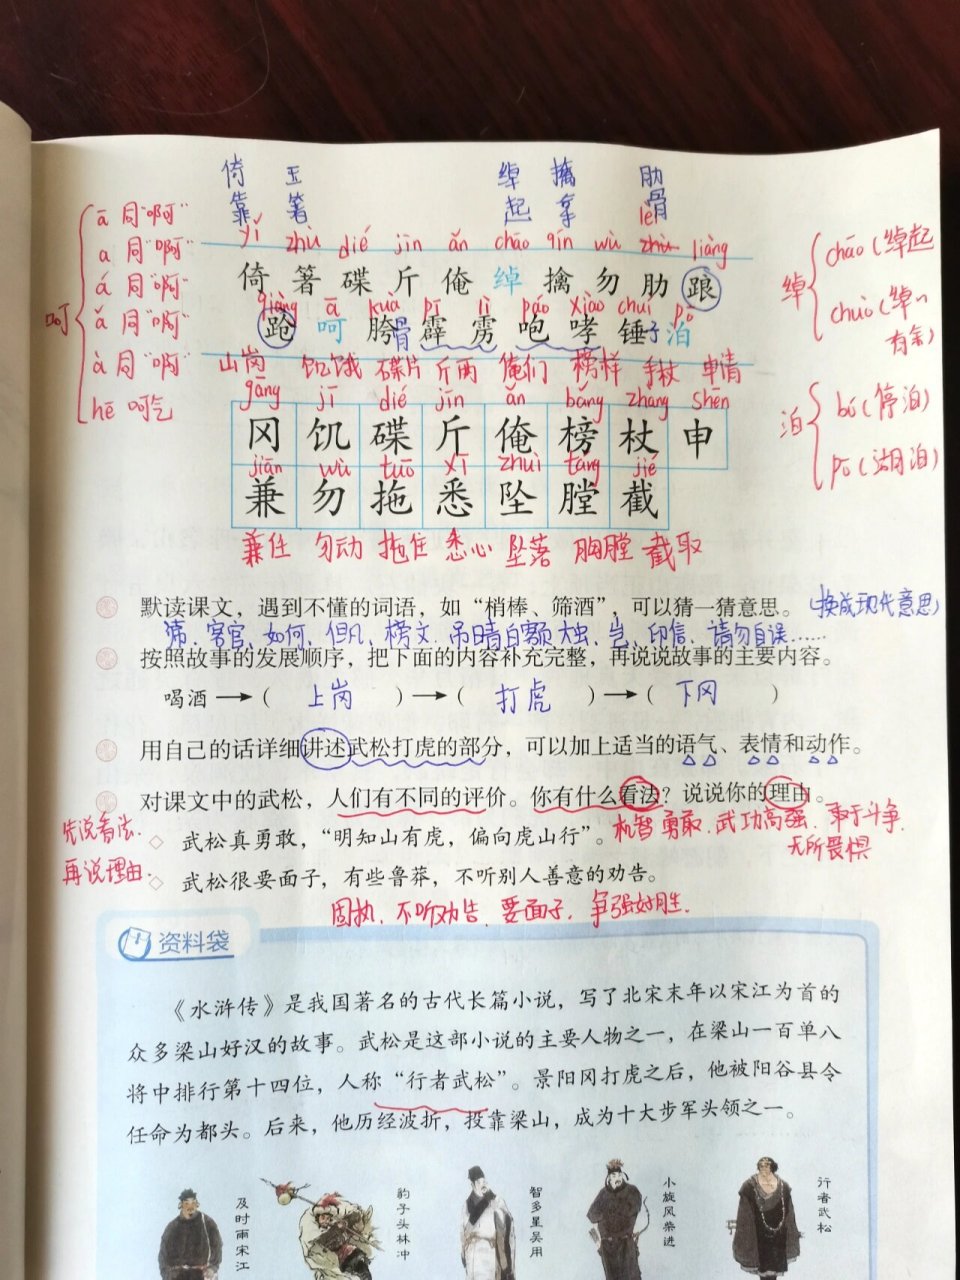 倚靠 玉箸 绰起 擒拿 肋骨
yǐ zhù dié jīn ǎn chāo qín wù lèi liàng
倚 箸 碟 斤 俺 绰 擒 勿 肋 踉
qiàng ā kuà pī lì páo xiào chuí pō
跄 呵 胯骨 霹 雳 咆 哮 锤子 泊
山岗 饥饿 碟片 斤两 俺们 榜样 手杖 申请
gāng jī dié jīn ǎn bǎng zhàng shēn
冈 饥 碟 斤 俺 榜 杖 申
jiān wù tuō xī zhuì táng jié
兼 勿 拖 悉 坠 膛 截
兼任 勿动 拖住 悉心 坠落 胸膛 截取
呵
ā 同“啊”
a 同“啊”
á 同“啊”
ǎ 同“啊”
à 同“啊”
hē 呵气
绰
chāo（绰起
chuò（绰
有余）
泊
bó（停泊）
pō（湖泊）
默读课文，遇到不懂的词语，如“梢棒、筛酒”，可以猜一猜意思。（换成现代意思）
筛、客官、如何、但凡、榜文、吊睛白额大虫、岂、印信、请勿自误……
按照故事的发展顺序，把下面的内容补充完整，再说说故事的主要内容。
喝酒→（ 上岗 ）→（ 打虎 ）→（ 下冈 ）
用自己的话详细讲述武松打虎的部分，可以加上适当的语气、表情和动作。
对课文中的武松，人们有不同的评价。你有什么看法？说说你的理由。
先说看法.
再说理由.
武松真勇敢，“明知山有虎，偏向虎山行”。
机智勇敢.武功高强.敢于斗争.
无所畏惧
武松很要面子，有些鲁莽，不听别人善意的劝告。
固执.不听劝告.要面子.争强好胜.
资料袋
《水浒传》是我国著名的古代长篇小说，写了北宋末年以宋江为首的
众多梁山好汉的故事。武松是这部小说的主要人物之一，在梁山一百单八
将中排行第十四位，人称“行者武松”。景阳冈打虎之后，他被阳谷县令
任命为都头。后来，他历经波折，投靠梁山，成为十大步军头领之一。
及时雨宋江
豹子头林冲
智多星吴用
小旋风柴进
行者武松